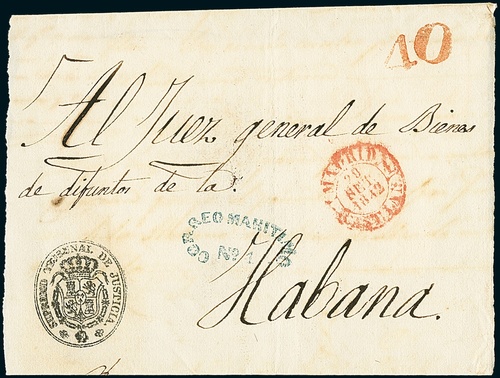 10
Al Juez general de Bienes
de difuntos de la.
MADRID
20
SET.
1842
CORREO MARITIMO
Nº 1
Habana.
SUPREMO TRIBUNAL DE JUSTICIA.